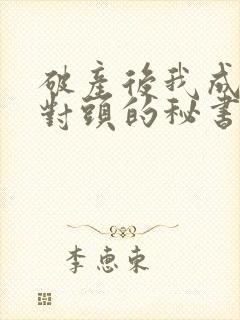 破產後我成
對頭的秘書
李惠東